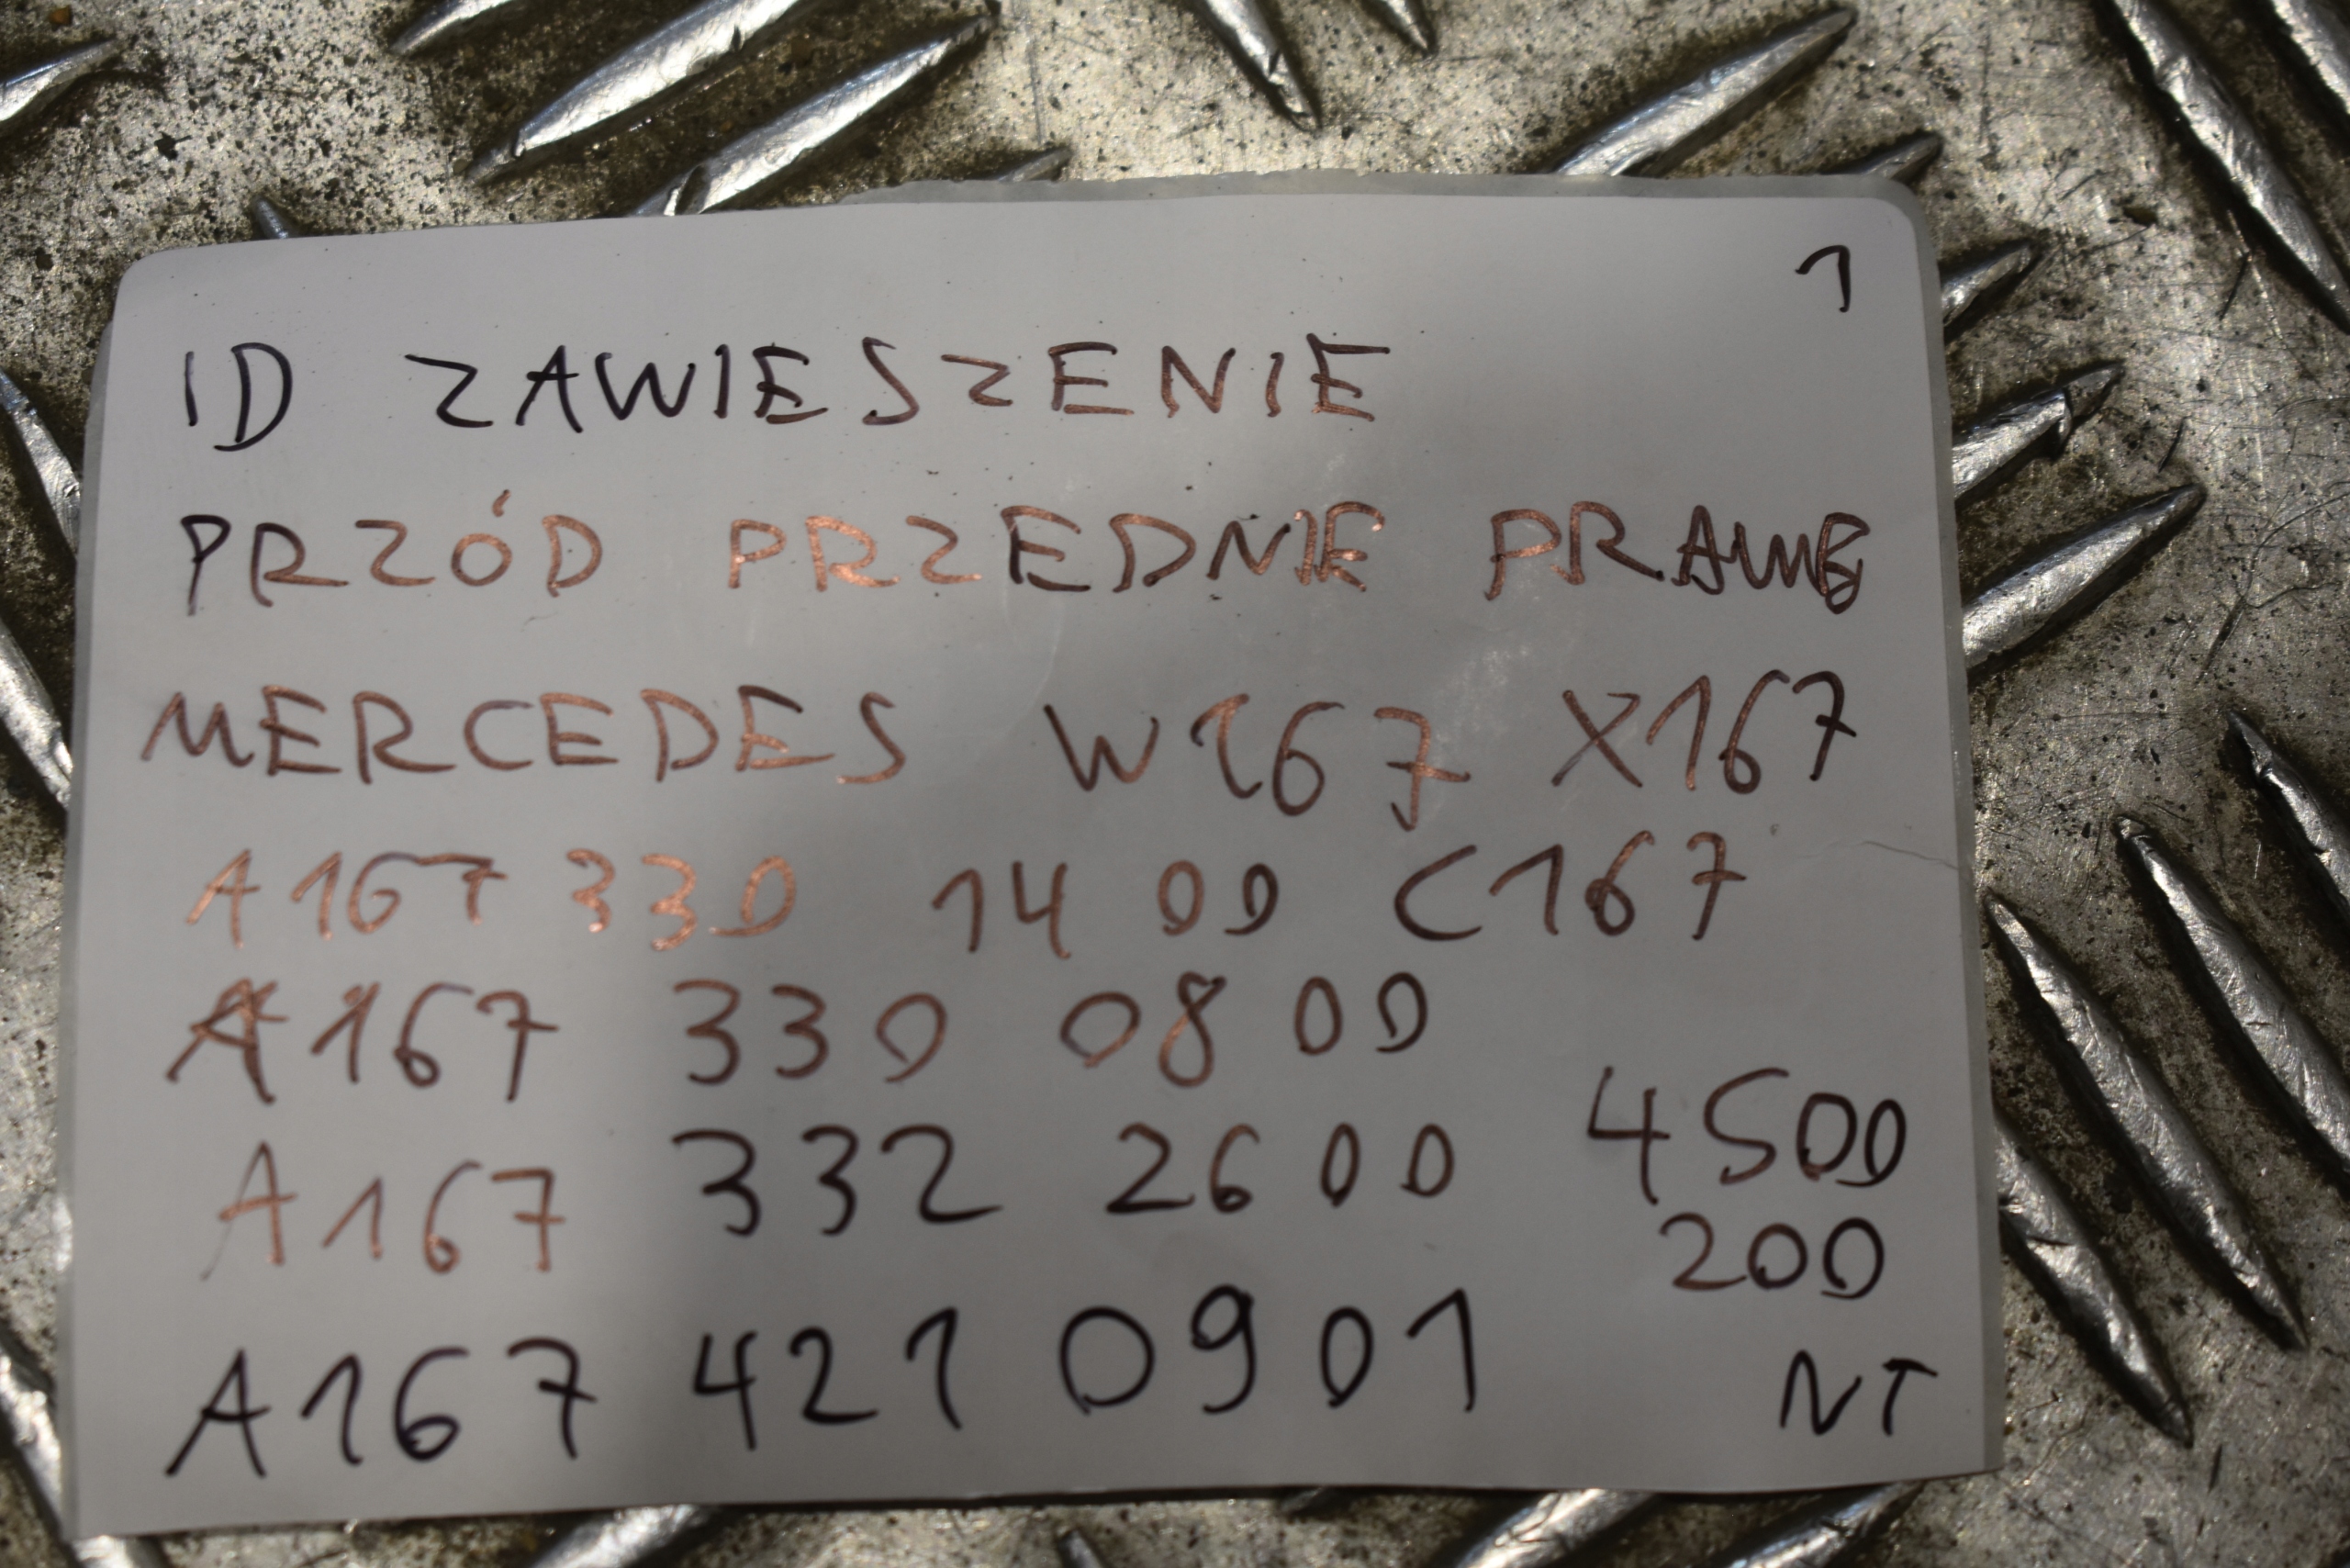 1
ID ZAWIESZENIE
PRZÓD PRZEDNIE PRAWE
MERCEDES W167 X167
A167 330 14 00 C167
A167 330 08 00
A167 332 26 00 4500
200
A167 421 0901 NT